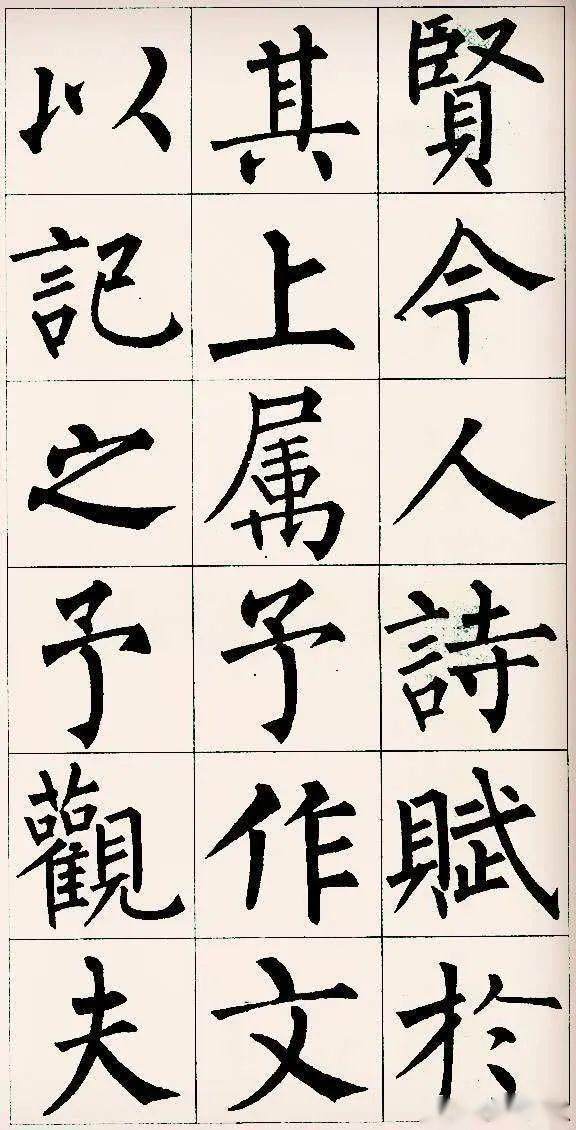 賢今人詩賦於
其上属予作文
以記之予觀夫